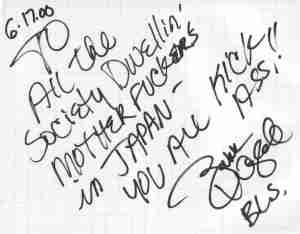 6.17.00
TO
All the
SOCIETY DWELLIN'
MOTHER FUCKERS
in JAPAN -
YOU All KICK
ASS!!
BLS.